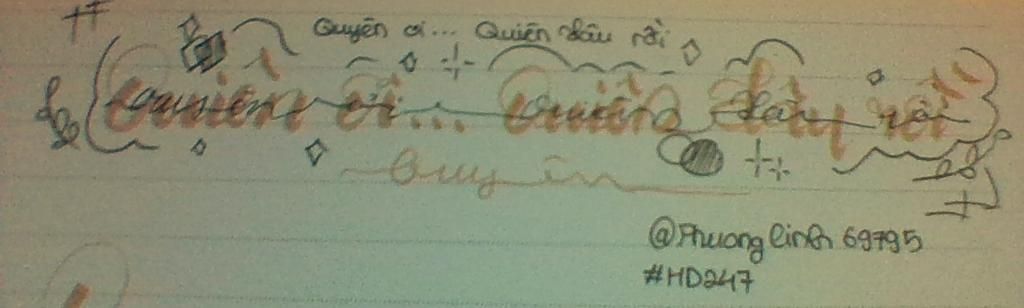 Quyên ơi... Quiên đâu rồi
Quiên ơi... Quiên đây rồi
Quyên
@Phuonglinh69795
#HD247